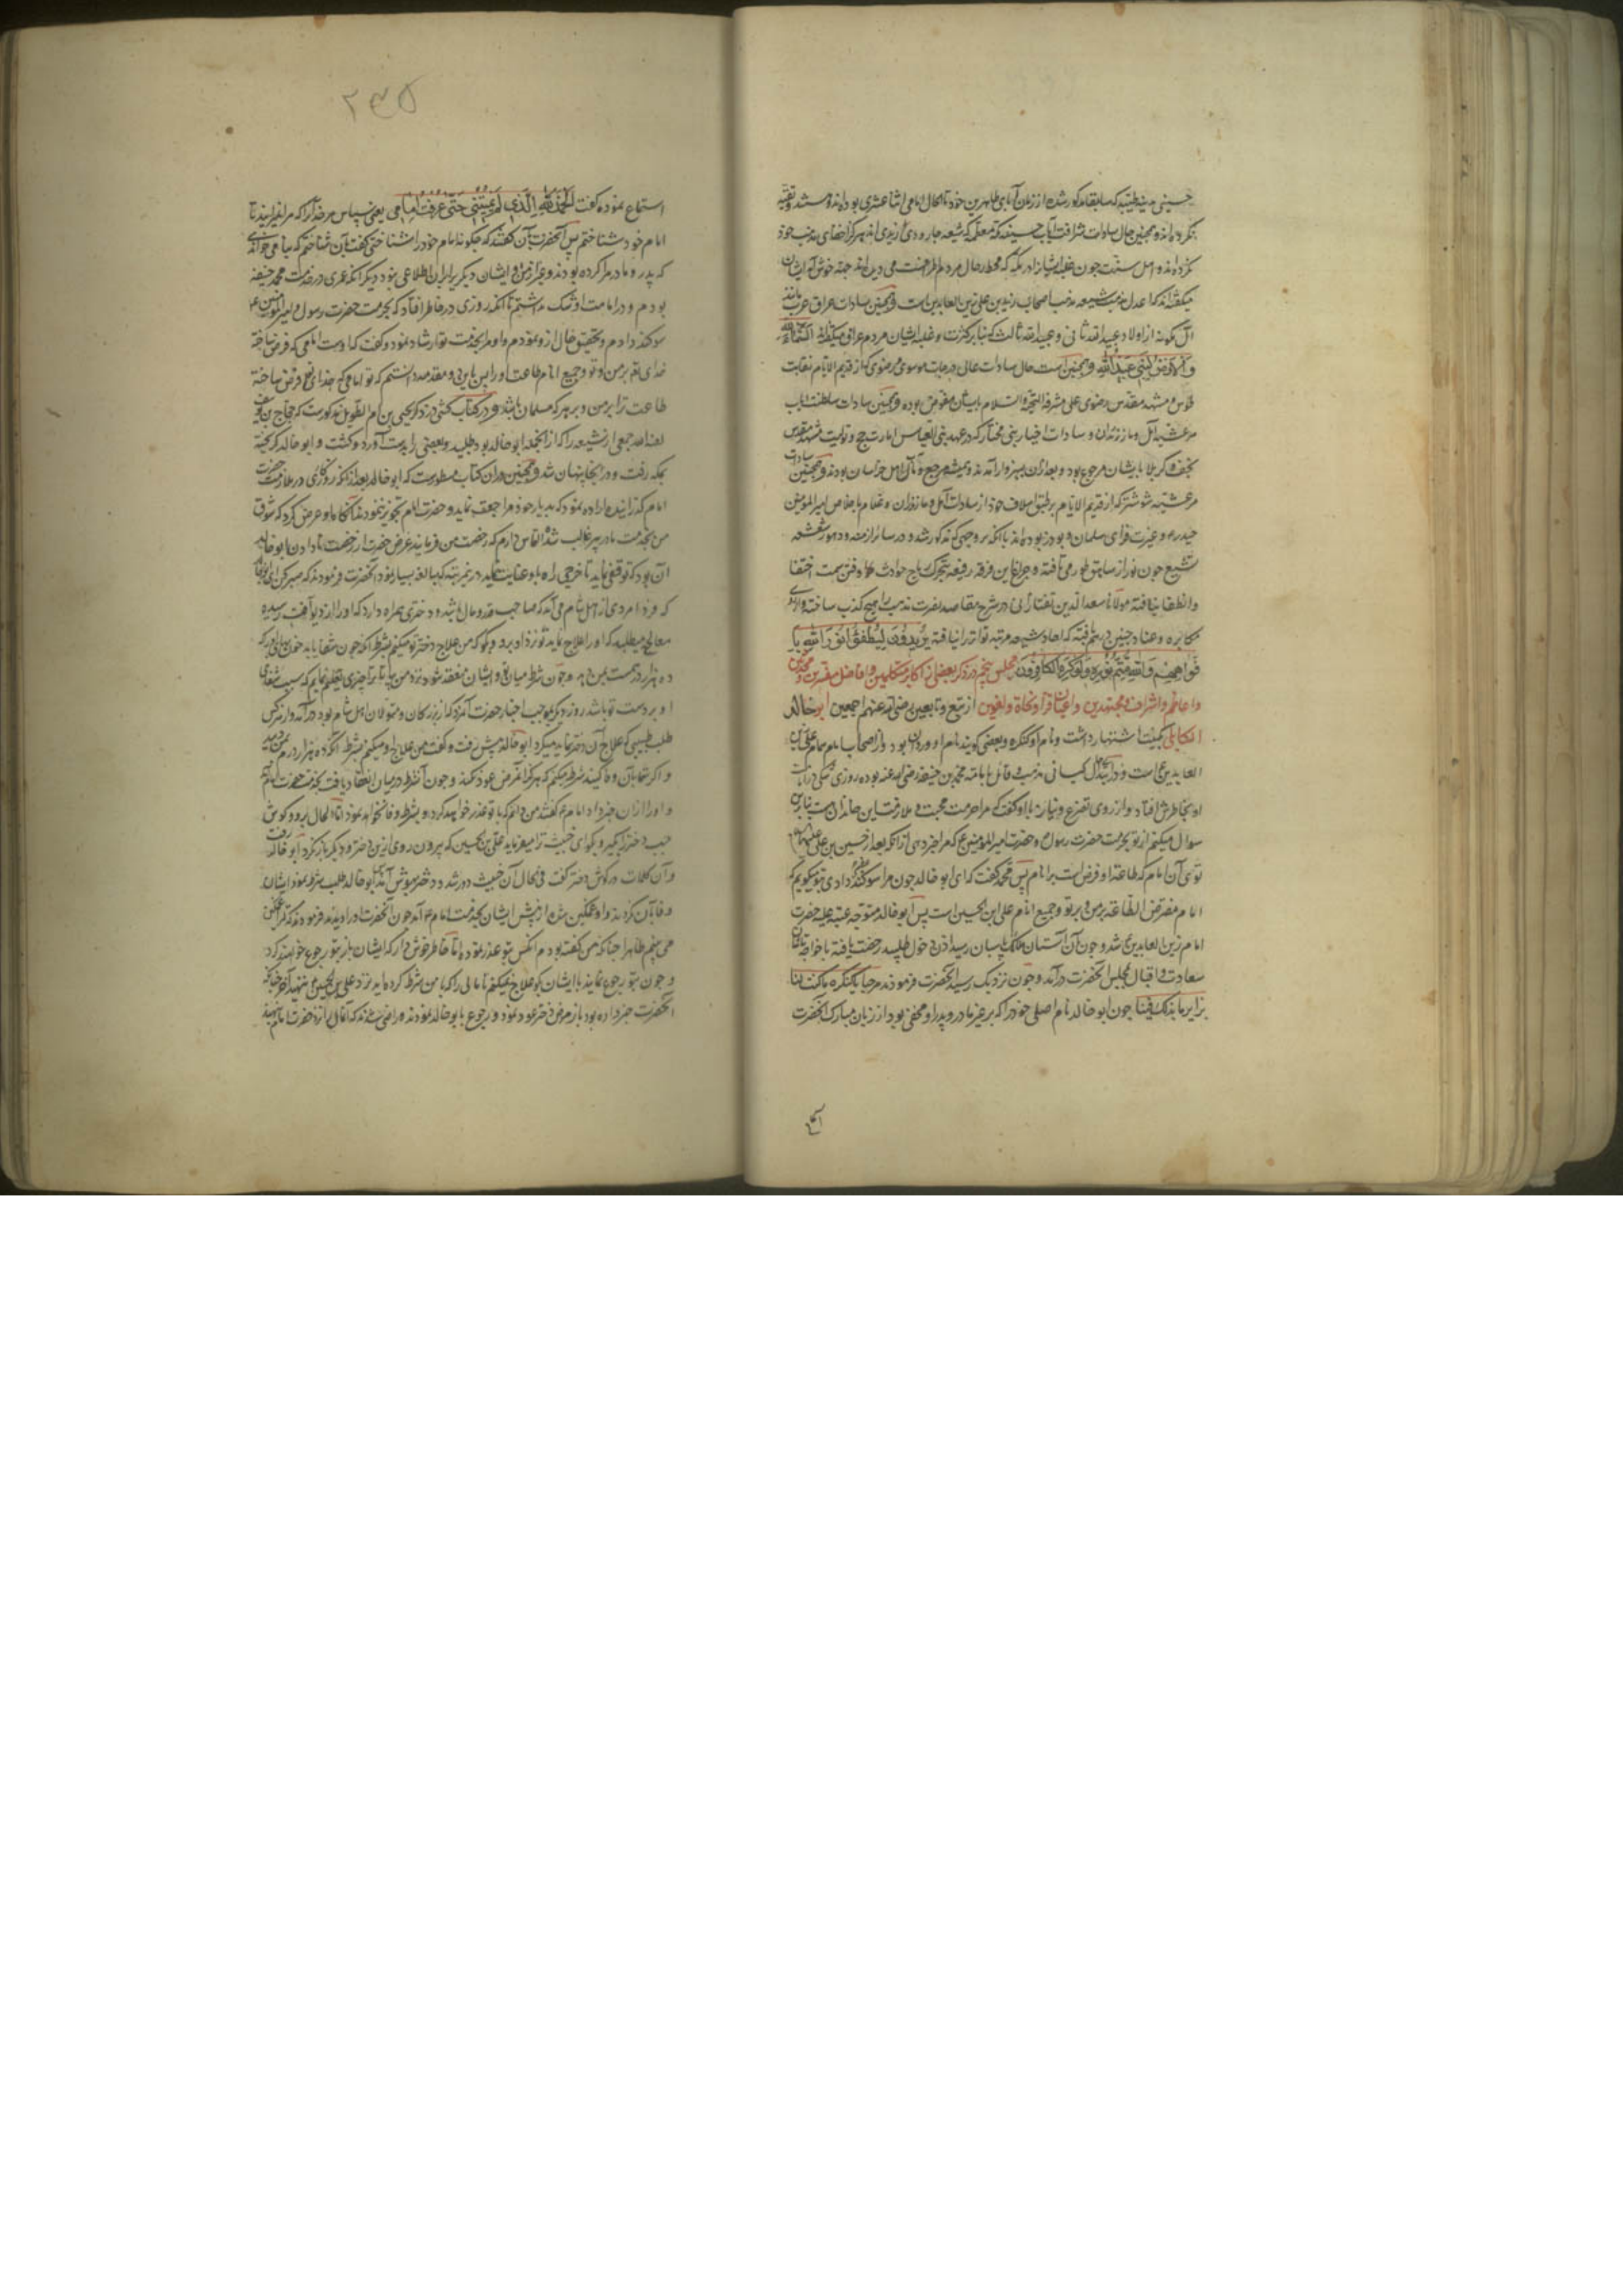 حسینی مدینه طیبه که سابقا مذکور شده از زمان آبای طاهرین خود تا الحال امامی اثنا عشری بوده‌اند و هستند و تقیه
نکرده‌اند و همچنین حال سادات شرافت‌مآب حسینیه مکه معظمه که شیعه جارودی زیدی‌اند هرگز اخفای مذهب خود
نکرده‌اند و اهل سنت چون غلبه ایشان را در مکه که محط رحال مردم اطرافست می‌دیده‌اند جهة خوش‌آمد ایشان
میگفته‌اند که اعدل مذهب شیعه مذهب اصحاب زید بن علی زین العابدین است و همچنین سادات عراق عرب مانند
آل مکونه از اولاد عبید الله ثانی و عبید الله ثالث که بنابر کثرت و غلبه ایشان مردم عراق میگفته‌اند السماء لله
والارض لبنی عبید الله و همچنین است حال سادات عالی درجات موسوی و رضوی که از قدیم الایام نقابت
قم و مشهد مقدس رضوی علی مشرفه التحیة والسلام بایشان مفوض بوده و همچنین سادات سلطنت‌مآب
مرعشیه آمل و مازندران و سادات اخیار بنی مختار که در عهد بنی العباس امارت حج و تولیت مشهد مقدس
نجف و کربلا بایشان مرجوع بود و بعد از آن بسبزوار آمده‌اند و همیشه مرجع و مآل اهل خراسان بودند و همچنین سادات
مرعشیه شوشتر که از قدیم الایام بر طبق اسلاف خود از سادات آمل و مازندران و غلام باخلاص امیر المؤمنین
حیدر و غیرت‌فزای سلمان و بوذر بوده‌اند با آنکه بر وجهی که مذکور شد و در سائر ازمنه و دهور شعشعه
تشیع چون نور از سابق طور می‌تافته و چراغ این فرقه رفیعه بتحرک ریاح حوادث و فتن سمت اختفا
وانطفا نیافته مولانا سعد الدین تفتازانی در شرح مقاصد نصرت مذهب را هیچ کذب ساخته و از روی
مکابره و عناد چنین در هم بافته که احادیث شیعه مرتبه تواتر را نیافته یریدون لیطفئوا نور الله با
فواههم والله متم نوره ولو کره الکافرون مجلس پنجم در ذکر بعضی از اکابر متکلمین و افاضل مفسرین و محدثین
واعاظم و اشراف مجتهدین و اعیان قراء و نحاة و لغویین از تبع و تابعین رضی الله عنهم اجمعین ابو خالد
الکابلی بکنیت اشتهار داشت و نام او کنکر و بعضی گویند نام او وردان بود و از اصحاب امام همام علی زین
العابدین ع است و در ابتدا حال کیسانی مذهب و قائل بامامت محمد بن حنفیه رضی الله عنه بوده روزی شکی در امامت
او بخاطرش افتاد و از روی تضرع و نیاز باو گفت که مرا حرمت محبت و ملازمت این خاندان هست بنابرین
سوال میکنم از تو بحرمت حضرت رسول و حضرت امیر المؤمنین ع که مرا خبر دهی از آنکه بعد از حسین بن علی علیهما
توئی آن امام که طاعة او فرض است بر انام پس محمد گفت که ای ابو خالد چون مرا سوگند دادی بتو میگویم که
امام مفترض الطاعة بر من و بر تو و جمیع انام علی ابن الحسین است پس ابو خالد متوجه عتبه علیه حضرت
امام زین العابدین ع شد و چون آن آستان ملک پاسبان رسید اذن دخول طلبید رخصت یافته باخواجه‌تاشان
سعادت و اقبال بمجلس آنحضرت درآمد و چون نزدیک رسید آنحضرت فرمودند مرحبا یا کنکر ما کنت لنا
بزائر ما بدا لک فینا چون ابو خالد نام اصلی خود را که بر غیر مادر و پدر او مخفی بود از زبان مبارک آنحضرت
۲۳۵
استماع نموده گفت الحمد لله الذی لم یمتنی حتی عرفت امامی یعنی سپاس مر خدا را که مرا نمیرانید تا
امام خود شناختم پس آنحضرت بآن گفتند که چگونه امام خود را شناختی گفت بآن شناختم که بنامی خواندی
که پدر و مادر مرا کرده بودند و غیر از من و ایشان دیگری را بران اطلاعی نبود دیگر آنکه عمری در خدمت محمد حنفیه
بودم و در امامت او شک نداشتم تا آنکه روزی در خاطر افتاد که بحرمت حضرت رسول و امیر المؤمنین ع
سوگند دادم و تحقیق حال ازو نمودم و او مرا بخدمت تو ارشاد نمود و گفت که اوست امامی که فرض ساخته
خدای تع بر من و تو و جمیع انام طاعت او را پس باین دو مقدمه دانستم که تو امامی که خدای تع فرض ساخته
طاعت ترا بر من و بر هر که مسلمان باشد و در کتاب کشی در ذکر یحیی بن ام الطویل مذکورست که حجاج بن یوسف
لعنه الله جمعی از شیعه را که از آنجمله ابو خالد بود طلبید و بعضی را بدست آورد و کشت و ابو خالد گریخته
بمکه رفت و در آنجا پنهان شد و همچنین در آن کتاب مسطورست که ابو خالد بعد از آنکه روزگاری در ملازمت حضرت
امام گذرانیده اراده نمود که بدیار خود مراجعت نماید و حضرت امام تجویز ننمودند آنگاه باو عرض کرد که شوق
من بخدمت مادر پیر غالب شده التماس دارم که رخصت من فرمایند غرض حضرت از رخصت نادادن ابو خالد
آن بود که توقفی باید تا خرجی راه باو عنایت نماید در نمرتبه که مبالغه بسیار نمود آنحضرت فرمودند که صبر کن ای ابو خالد
که فردا مردی از اهل شام می‌آید که صاحب قدر و مال باشد و دختری همراه دارد که او را از دیو آفت رسیده
معالجی میطلبد که او را علاج نماید تو نزد او برو و بگو که من علاج دختر تو میکنم بشرط آنکه چون شفا یابد
ده هزار درهم بمن دهد و چون شرط میان تو و ایشان منعقد شود نزد من بیا تا ترا چیزی تعلیم نمایم که سبب شفای
او بر دست تو باشد روز دیگر بموجب اخبار حضرت آن مرد که از بزرگان و متمولان اهل شام بود درآمد و از هر کس
طلب طبیبی که علاج آن دختر نماید میکرد ابو خالد پیش رفت و گفت من علاج او میکنم بشرط آنکه ده هزار درم بمن دهید
و اگر شما بآن وفا کنید شرط میکنم که هرگز آن مرض عود نکند و چون آن شرط در میان انعقاد یافت بخدمت حضرت امام آمد
و او را از آن خبر داد امام ع گفتند من میدانم که با تو غدر خواهند کرد و بشرط وفا نخواهند نمود امّا الحال برو و گوش
چپ دختر را بگیر و بگو ای خبیث ترا میفرماید علی بن الحسین که بیرون رو از این دختر و دیگر باز نگرد ابو خالد رفت
و آن کلمات در گوش دختر گفت فی الحال آن خبیث دور شد و دختر بهوش آمد ابو خالد طلب شرط نمود ایشان
وفا بآن نکردند و او غمگین شده از پیش ایشان بخدمت امام ع آمد چون آنحضرت او را دیدند فرمودند که ترا غمگین
می‌بینم ظاهرا چنانکه من گفته بودم آنکس بتو غدر نموده امّا خاطر خوش دار که ایشان باز بتو رجوع خواهند کرد
و چون بتو رجوع نمایند با ایشان بگو علاج نمیکنم تا مالی را که با من شرط کرده‌اید نزد علی بن الحسین ع بنهید آخر چنانکه
آنحضرت خبر داده بود باز مرض دختر عود نمود و رجوع بابو خالد نمودند و راضی شدند که آن مال را نزد حضرت امام بنهند